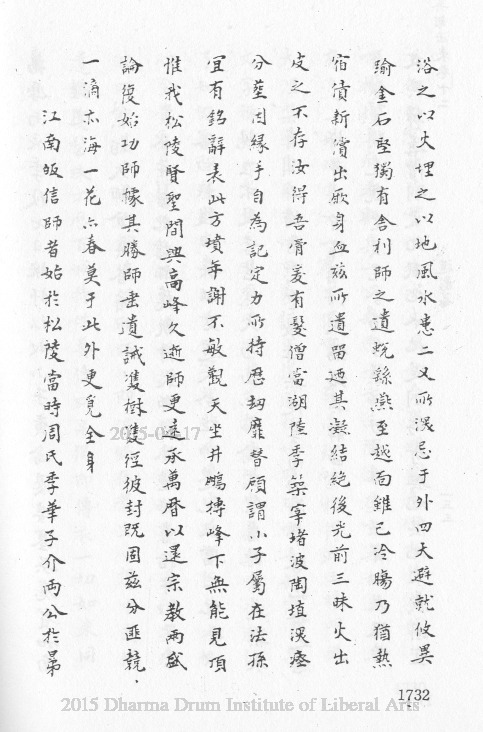 浴之以火埋之以地風水患二又所深忌于外四大避就攸異
瑜金石堅獨有舍利師之遺蛻繇燕至越面雖已冷腸乃猶熱
宿債新償出厥身血茲所遺留迺其凝結絕後光前三昧火出
皮之不存汝得吾骨爰有髮僧當湖陸季築窣堵波陶埴深瘞
分塟因緣手自為記定力所持歷劫靡替顧謂小子屬在法孫
宜有銘辭表此方墳年謝不敏觀天坐井鵬摶峰下無能見頂
惟我松陵賢聖間興高峰久逝師更遠承萬曆以還宗教兩盛
論復始功師據其勝師垂遺誡雙樹雙徑彼封既固茲分匪競
一滴亦海一花亦春莫于此外更覓全身
江南皈信師者始於松陵當時周氏季華子介兩公於最
1732
2015-04-17
2015 Dharma Drum Institute of Liberal Arts